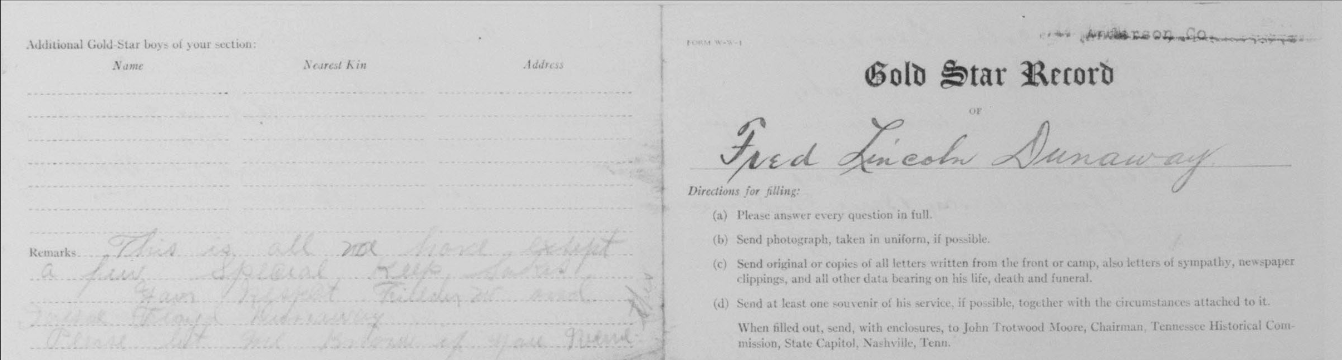 Additional Gold-Star boys of your section:
Name Nearest Kin Address
Remarks This is all we have except
a few Special Keep Sakes.
and
Dunaway
Please let me Know if you
FORM W-W-1
Anderson Co.
Gold Star Record
OF
Fred Lincoln Dunaway
Directions for filling:
(a) Please answer every question in full.
(b) Send photograph, taken in uniform, if possible.
(c) Send original or copies of all letters written from the front or camp, also letters of sympathy, newspaper
clippings, and all other data bearing on his life, death and funeral.
(d) Send at least one souvenir of his service, if possible, together with the circumstances attached to it.
When filled out, send, with enclosures, to John Trotwood Moore, Chairman, Tennessee Historical Com-
mission, State Capitol, Nashville, Tenn.